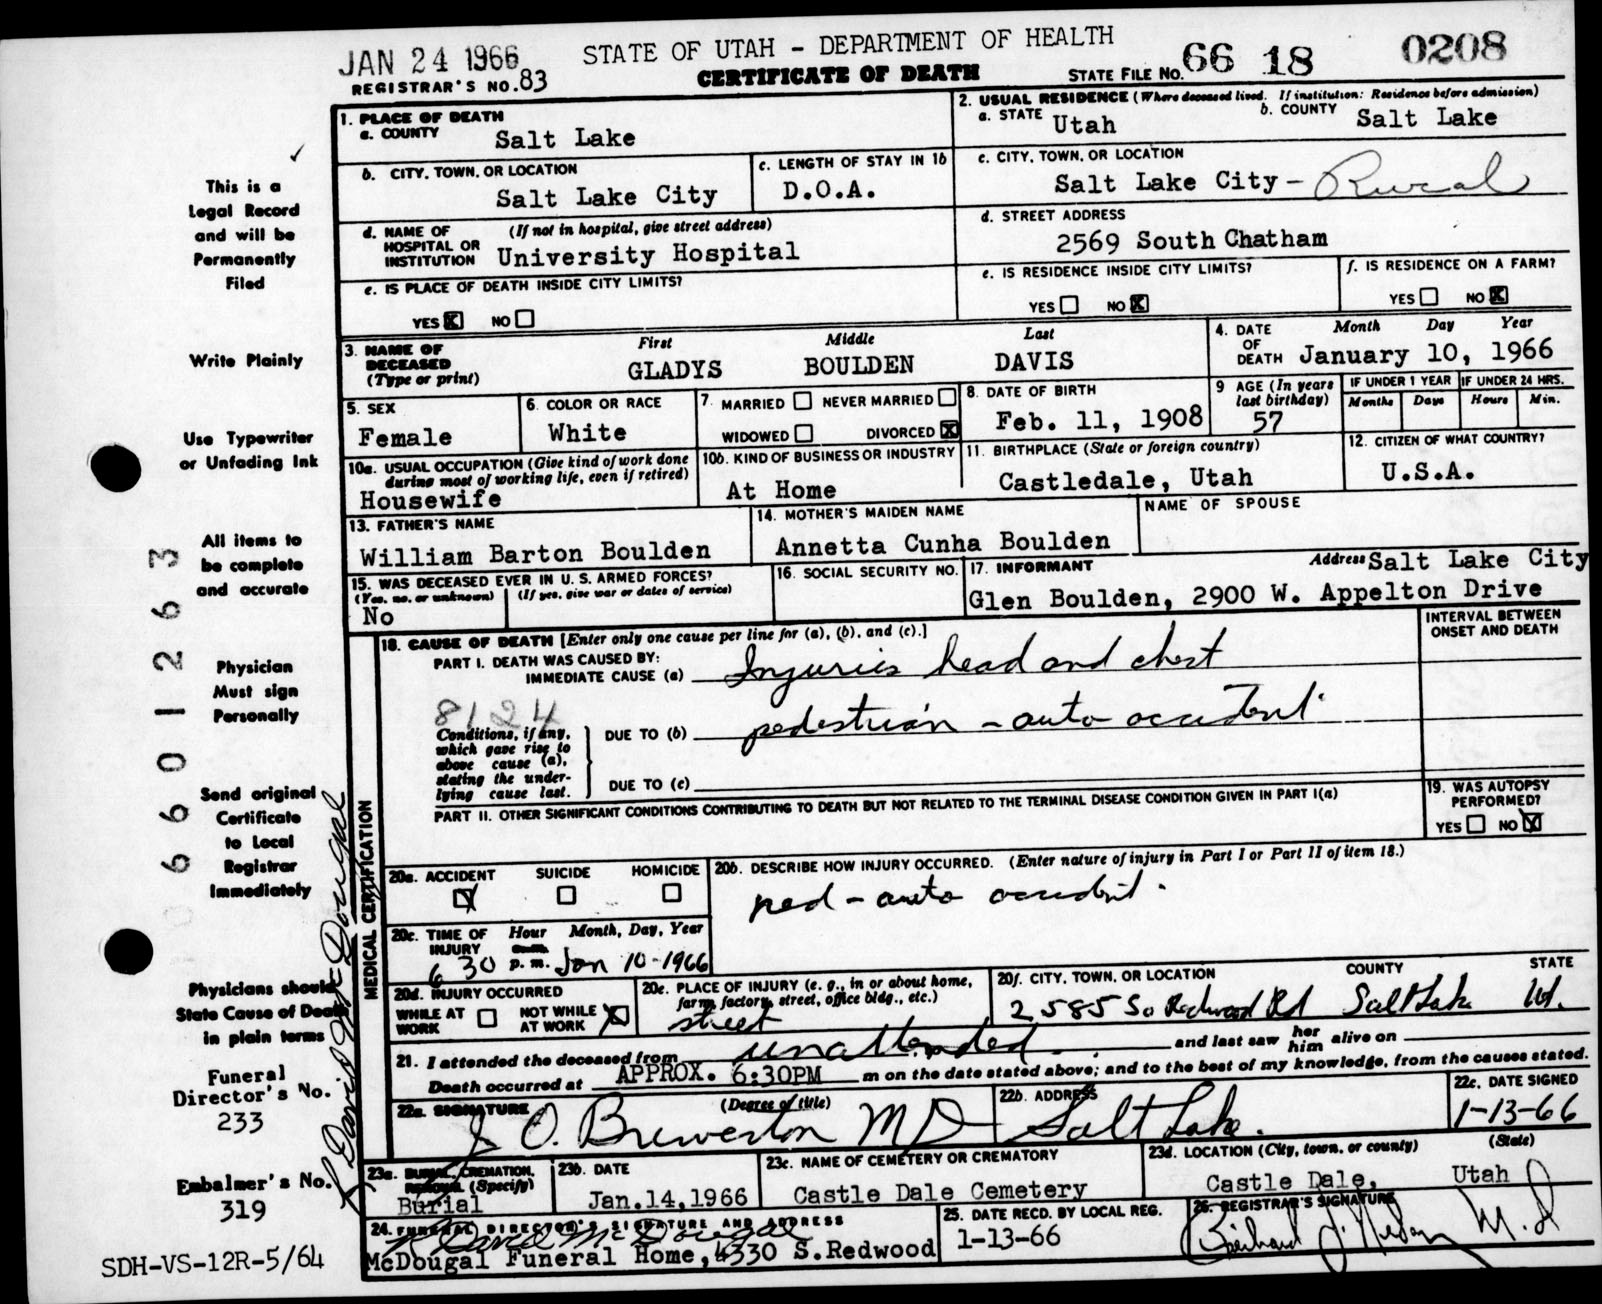 JAN 24 1966 STATE OF UTAH - DEPARTMENT OF HEALTH 66 18 0208
REGISTRAR'S NO. 83 CERTIFICATE OF DEATH STATE FILE NO.
1. PLACE OF DEATH
a. COUNTY Salt Lake
2. USUAL RESIDENCE (Where deceased lived. If institution: Residence before admission)
a. STATE Utah b. COUNTY Salt Lake
b. CITY, TOWN, OR LOCATION Salt Lake City
c. LENGTH OF STAY IN 1b D.O.A.
c. CITY, TOWN, OR LOCATION
Salt Lake City - Rural
d. NAME OF HOSPITAL OR INSTITUTION (If not in hospital, give street address)
University Hospital
d. STREET ADDRESS
2569 South Chatham
e. IS PLACE OF DEATH INSIDE CITY LIMITS?
YES X NO
e. IS RESIDENCE INSIDE CITY LIMITS?
YES NO X
f. IS RESIDENCE ON A FARM?
YES NO X
3. NAME OF DECEASED (Type or print)
First Middle Last
GLADYS BOULDEN DAVIS
4. DATE OF DEATH Month Day Year
January 10, 1966
5. SEX
Female
6. COLOR OR RACE
White
7. MARRIED NEVER MARRIED
WIDOWED DIVORCED X
8. DATE OF BIRTH
Feb. 11, 1908
9 AGE (In years last birthday)
57
IF UNDER 1 YEAR IF UNDER 24 HRS.
Months Days Hours Min.
10a. USUAL OCCUPATION (Give kind of work done during most of working life, even if retired)
Housewife
10b. KIND OF BUSINESS OR INDUSTRY
At Home
11. BIRTHPLACE (State or foreign country)
Castledale, Utah
12. CITIZEN OF WHAT COUNTRY?
U.S.A.
13. FATHER'S NAME
William Barton Boulden
14. MOTHER'S MAIDEN NAME
Annetta Cunha Boulden
NAME OF SPOUSE
15. WAS DECEASED EVER IN U. S. ARMED FORCES?
(Yes, no, or unknown) (If yes, give war or dates of service)
No
16. SOCIAL SECURITY NO.
17. INFORMANT Address Salt Lake City
Glen Boulden, 2900 W. Appelton Drive
18. CAUSE OF DEATH [Enter only one cause per line for (a), (b), and (c).]
INTERVAL BETWEEN ONSET AND DEATH
PART I. DEATH WAS CAUSED BY:
IMMEDIATE CAUSE (a) Injuries head and chest
8124
Conditions, if any, which gave rise to above cause (a), stating the underlying cause last.
DUE TO (b) pedestrian - auto accident
DUE TO (c)
PART II. OTHER SIGNIFICANT CONDITIONS CONTRIBUTING TO DEATH BUT NOT RELATED TO THE TERMINAL DISEASE CONDITION GIVEN IN PART I(a)
19. WAS AUTOPSY PERFORMED?
YES NO X
MEDICAL CERTIFICATION
20a. ACCIDENT SUICIDE HOMICIDE
X
20b. DESCRIBE HOW INJURY OCCURRED. (Enter nature of injury in Part I or Part II of item 18.)
ped - auto accident.
20c. TIME OF INJURY Hour Month, Day, Year
6 30 p. m. Jan 10-1966
20d. INJURY OCCURRED
WHILE AT WORK NOT WHILE AT WORK X
20e. PLACE OF INJURY (e. g., in or about home, farm, factory, street, office bldg., etc.)
street
20f. CITY, TOWN, OR LOCATION COUNTY STATE
2585 So Redwood Rd Salt Lake Ut.
21. I attended the deceased from unattended and last saw her him alive on
Death occurred at APPROX. 6:30PM m on the date stated above; and to the best of my knowledge, from the causes stated.
22a. SIGNATURE (Degree of title)
J O. Brewerton MD
22b. ADDRESS
Salt Lake.
22c. DATE SIGNED
1-13-66
23a. BURIAL, CREMATION, REMOVAL (Specify)
Burial
23b. DATE
Jan.14,1966
23c. NAME OF CEMETERY OR CREMATORY
Castle Dale Cemetery
23d. LOCATION (City, town, or county) (State)
Castle Dale, Utah
24. FUNERAL DIRECTOR'S SIGNATURE AND ADDRESS
R David McDougal
McDougal Funeral Home, 4330 S.Redwood
25. DATE RECD. BY LOCAL REG.
1-13-66
26. REGISTRAR'S SIGNATURE
M.D
This is a
Legal Record
and will be
Permanently
Filed
Write Plainly
Use Typewriter
or Unfading Ink
All items to
be complete
and accurate
Physician
Must sign
Personally
Send original
Certificate
to Local
Registrar
Immediately
Physicians should
State Cause of Death
in plain terms
Funeral
Director's No.
233
Embalmer's No.
319
SDH-VS-12R-5/64
66 01 263
R David McDougal